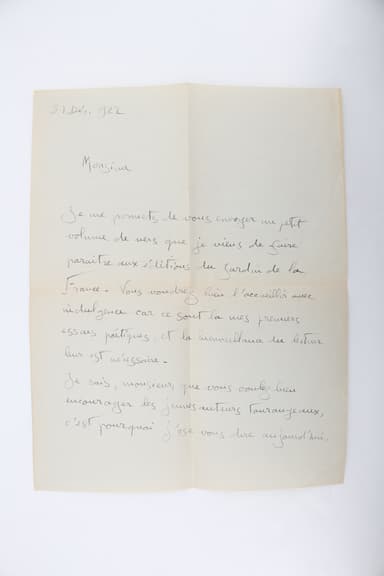 Déc. 1922
Monsieur
Je me permets de vous envoyer un petit
volume de vers que je viens de faire
paraître aux éditions du Jardin de la
France. Vous voudrez bien l'accueillir avec
indulgence car ce sont là mes premiers
essais poétiques, et la bienveillance du lecteur
leur est nécessaire.
Je sais, monsieur, que vous voulez bien
encourager les jeunes auteurs tourangeaux,
c'est pourquoi j'ose vous dire aujourd'hui.